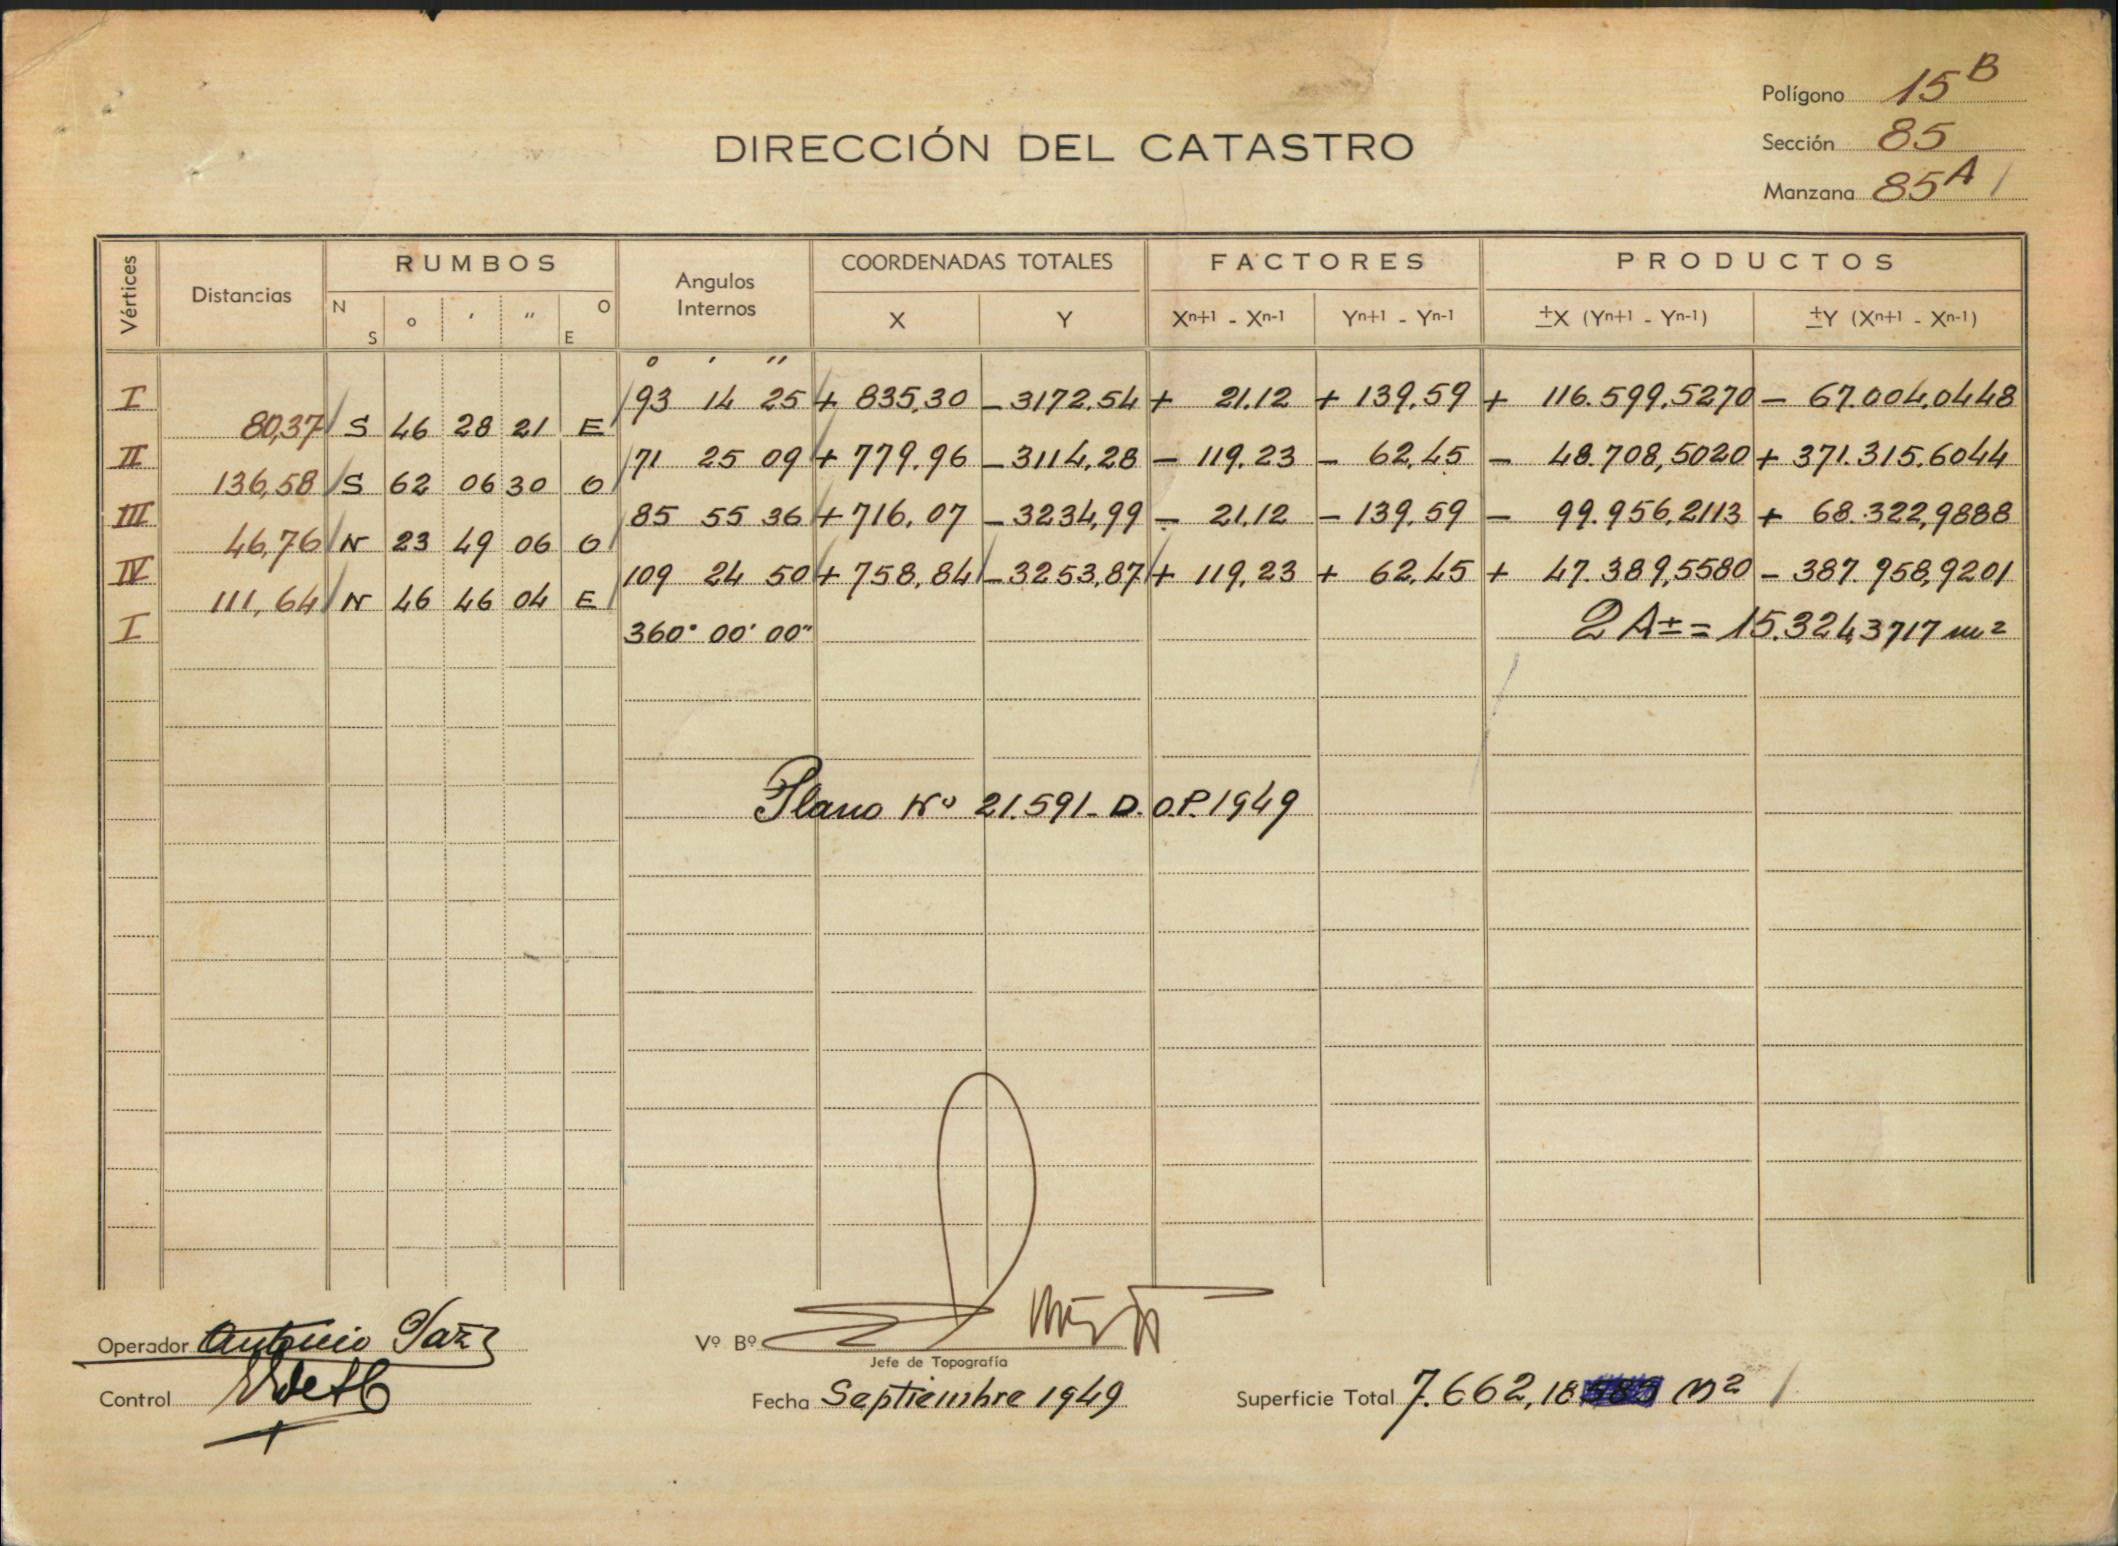 Polígono 15B
DIRECCIÓN DEL CATASTRO
Sección 85
Manzana 85A
Vértices Distancias RUMBOS Angulos Internos COORDENADAS TOTALES FACTORES PRODUCTOS
N S ° ' " O E X Y Xn+1 - Xn-1 Yn+1 - Yn-1 ±X (Yn+1 - Yn-1) ±Y (Xn+1 - Xn-1)
° ' "
I 93 14 25 + 835,30 - 3172,54 + 21.12 + 139,59 + 116.599,5270 - 67.004,0448
80,37 S 46 28 21 E
II 71 25 09 + 779,96 - 3114,28 - 119,23 - 62,45 - 48.708,5020 + 371.315,6044
136,58 S 62 06 30 O
III 85 55 36 + 716,07 - 3234,99 - 21,12 - 139,59 - 99.956,2113 + 68.322,9888
46,76 N 23 49 06 O
IV 109 24 50 + 758,84 - 3253,87 + 119,23 + 62,45 + 47.389,5580 - 387.958,9201
111,64 N 46 46 04 E
I 360° 00' 00" 2A± = 15.324,3717 m2
Plano Nº 21.591 - D.O.P. 1949
Operador Antonio
Vº Bº
Jefe de Topografía
Control
Fecha Septiembre 1949
Superficie Total 7.662,18 m2